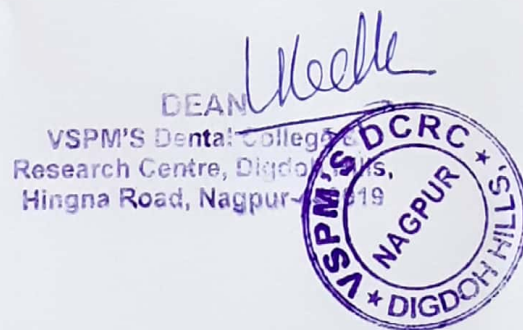 DEAN
VSPM'S Dental College &
Research Centre, Digdoh Hills,
Hingna Road, Nagpur-
VSPM'S DCRC ★ DIGDOH HILLS ★
NAGPUR